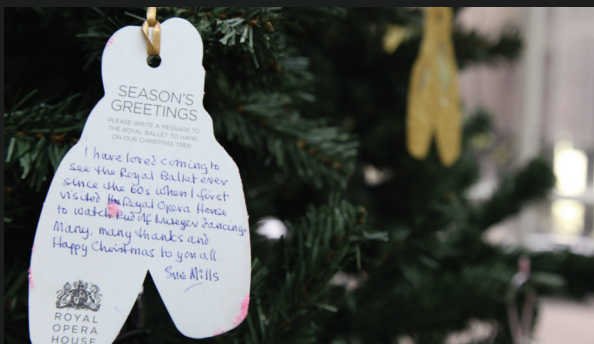 SEASON'S
GREETINGS
PLEASE WRITE A MESSAGE TO
THE ROYAL BALLET TO HANG
ON OUR CHRISTMAS TREE
I have loved coming to
see the Royal Ballet ever
since the 60s when I first
visited the Royal Opera House
to watch Rudolf Nureyev dancing.
Many, many thanks and
Happy Christmas to you all
Sue Mills
ROYAL
OPERA
HOUSE